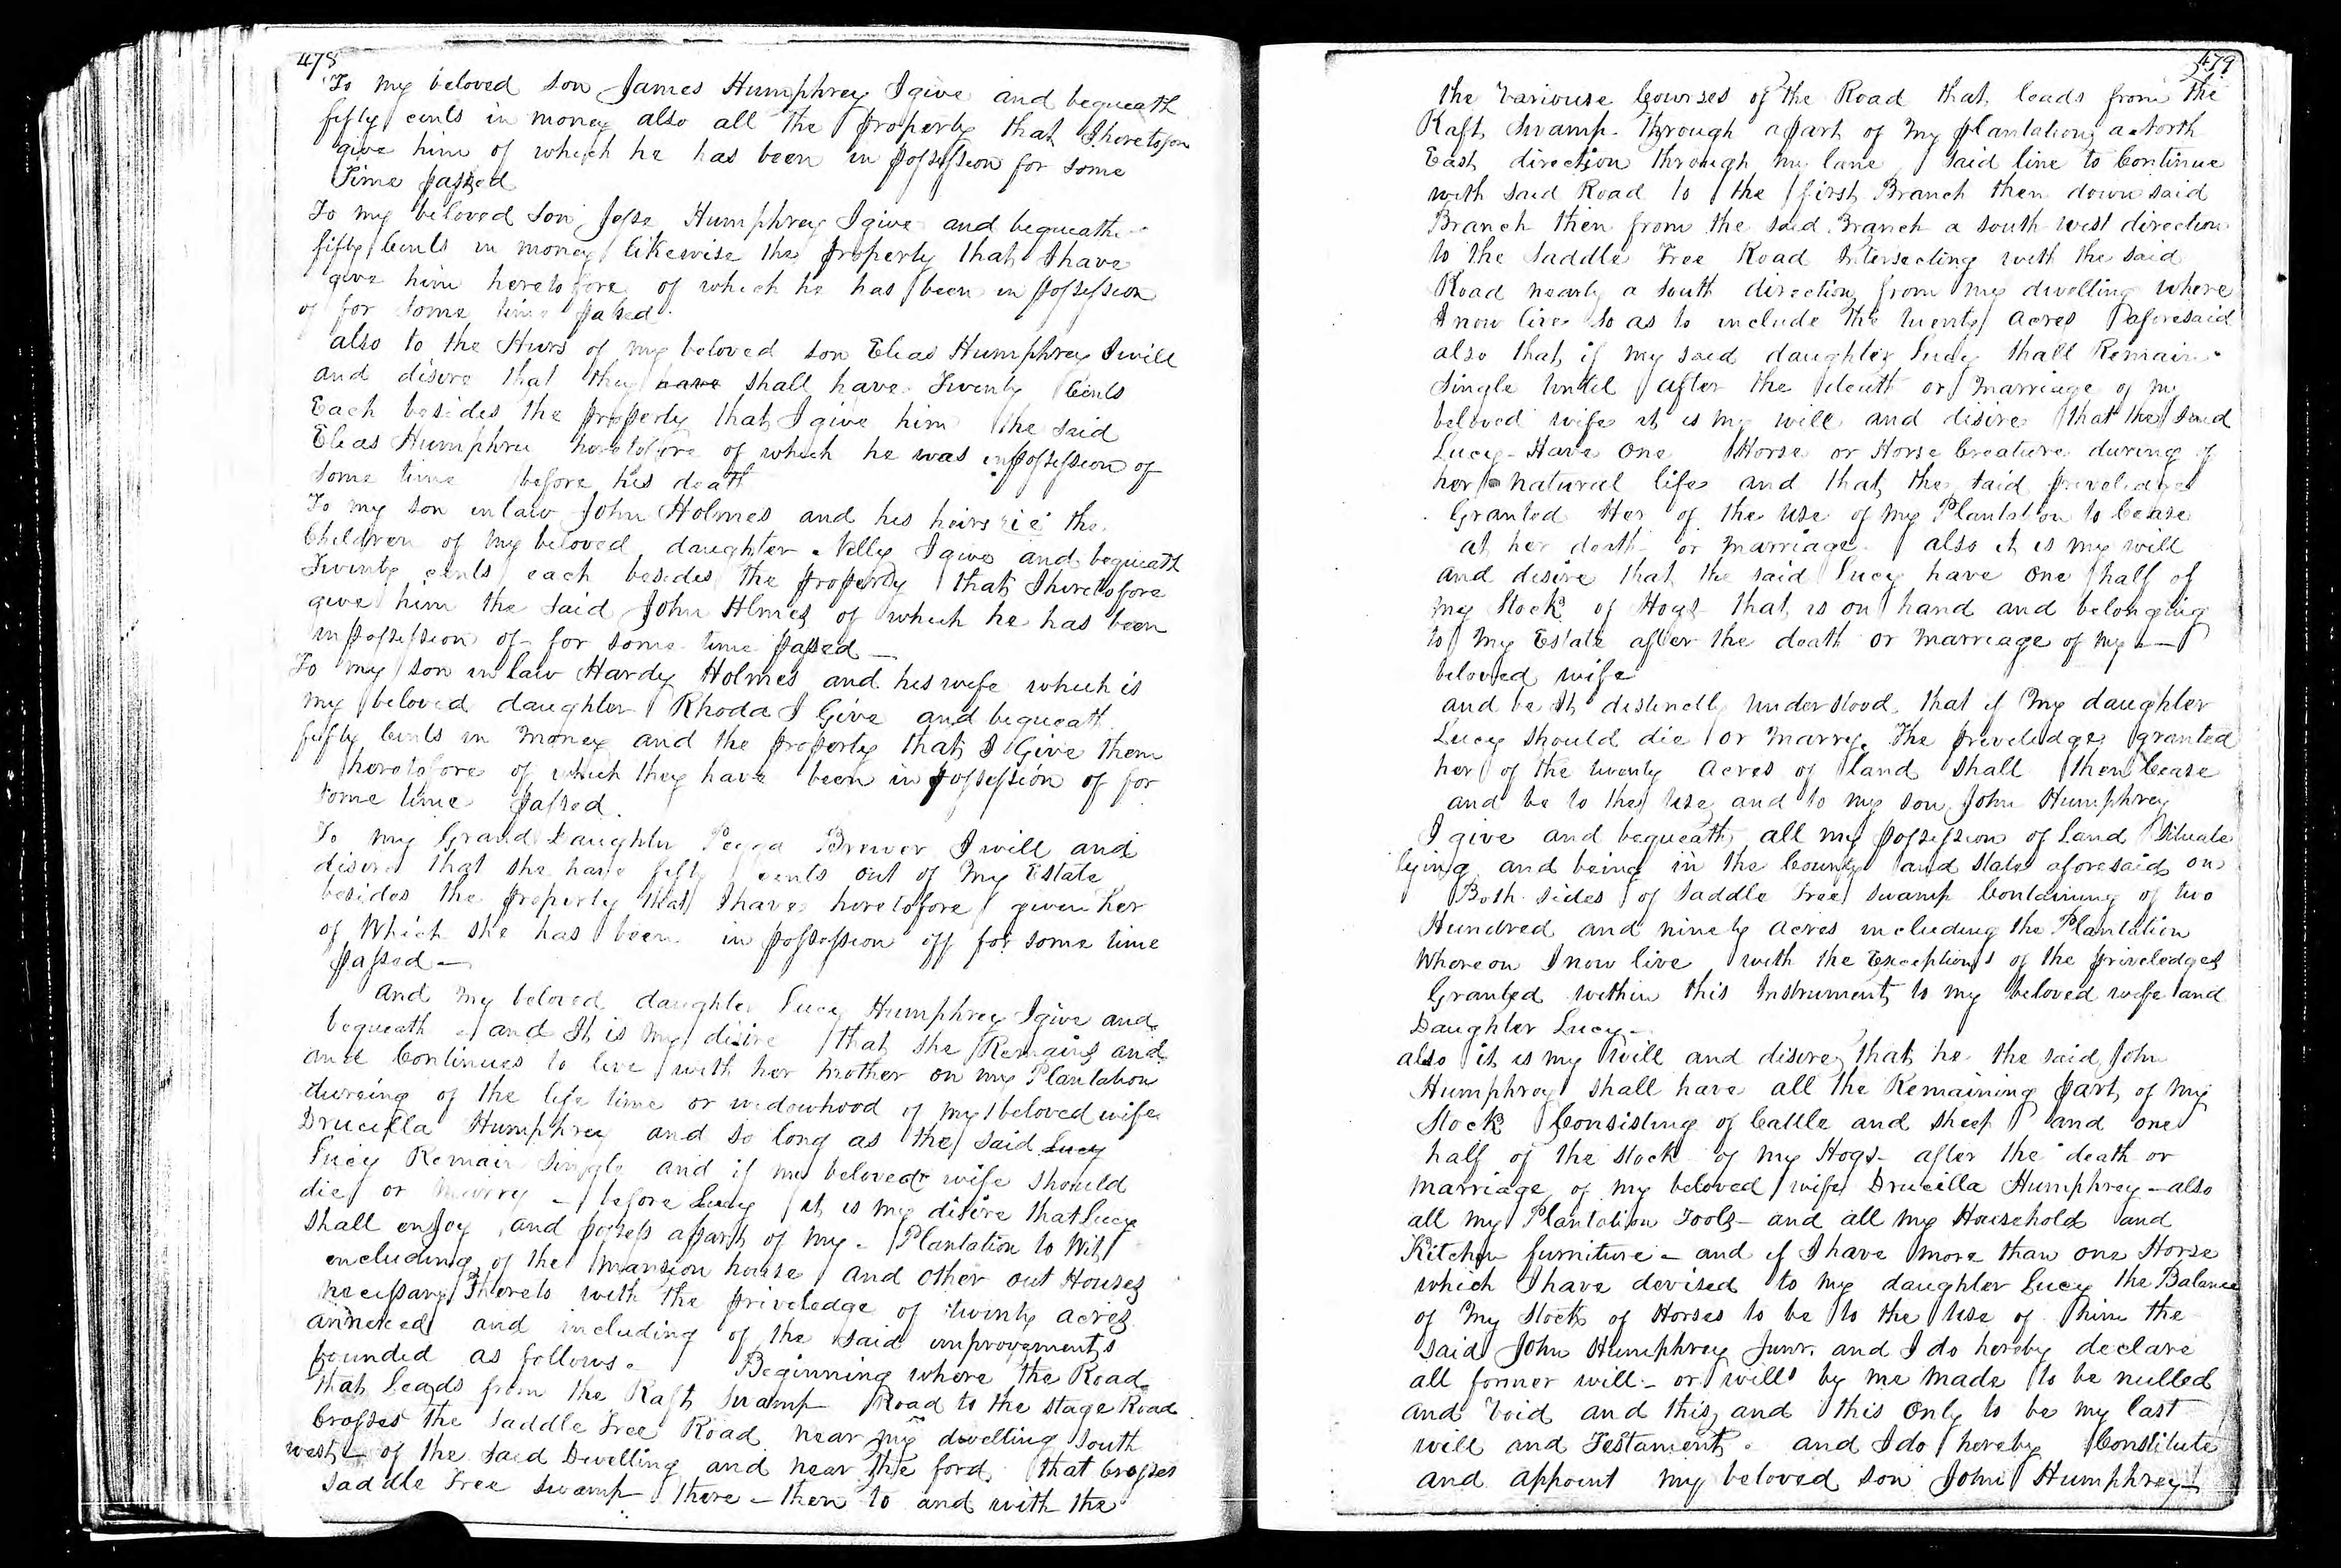 478
To my beloved son James Humphrey I give and bequeath
fifty cents in money also all the property that I heretofore
give him of which he has been in possession for some
Time passed
To my beloved son Jesse Humphrey I give and bequeath
fifty Cents in money likewise the property that I have
give him heretofore of which he has been in possession
of for some time passed.
also to the Heirs of my beloved son Elias Humphrey I will
and disire that they have shall have Twenty Cents
Each besides the property that I give him the said
Elias Humphrey heretofore of which he was in possession of
some time before his death
To my son in law John Holmes and his heirs ie the
Children of my beloved daughter Nelly I give and bequeath
Twenty cents each besides the property that I heretofore
give him the said John Hlmes of which he has been
in possession of for some time passed —
To my son in law Hardy Holmes and his wife which is
my beloved daughter Rhoda I Give and bequeath
fifty Cents in Money and the property that I Give them
heretofore of which they have been in possession of for
some time passed.
To my Grand Daughter Pegga Brewer I will and
disire that she have fifty cents out of My Estate
besides the property that I have heretofore given her
of Which she has been in possession off for some time
passed —
And my beloved daughter Lucy Humphrey I give and
bequeath and It is my disire that she Remains and
and Continues to live with her mother on my Plantation
dureing of the life time or widowhood of my beloved wife
Drucilla Humphrey and so long as the said Lucy
Lucy Remain Single and if my beloved wife should
die or Marry - before Lucy it is my disire that Lucy
shall enjoy and possess apart of my - Plantation to Wit
including of the mansion house and other out Houses
necessary thereto with the priveledge of twenty acres
annexed and including of the said improvements
bounded as follows. Beginning where the Road
that leads from the Raft Swamp Road to the stage Road
Crosses the Saddle Tree Road near my dwelling South
west - of the said Dwelling and near the ford that Crosses
Saddle Tree Swamp there - then to and with the
479
the Variouse Courses of the Road that leads from the
Raft Swamp - through apart of my plantation a North
East direction through my lane said line to Continue
with said Road to the first Branch then down said
Branch then from the said Branch a south west direction
to the Saddle Tree Road Intersecting with the said
Road nearly a south direction from my dwelling where
I now live so as to include the twenty acres aforesaid
also that if my said daughter Lucy shall Remain
Single Until after the death or Marriage of my
beloved wife it is my will and disire that the said
Lucy - Have One Horse or Horse Creature during of
her natural life and that the said priveledge
Granted Her of the Use of my Plantation to Cease
at her death or marriage. also it is my will
and desire that the said Lucy have one half of
my Stock of Hogs that is on hand and belonging
to my Estate after the death or marriage of my —
beloved wife
and be It distinctly understood that if my daughter
Lucy should die or marry. The priveledge granted
her of the twenty acres of land shall then Cease
and be to the Use and to my son John Humphrey
I give and bequeath all my possession of Land Situate
lying and being in the County and State aforesaid on
Both sides of Saddle Tree Swamp Containing of two
Hundred and ninety acres including the Plantation
Whereon I now live with the Exceptions of the priveledges
Granted within this Instrument to my beloved wife and
Daughter Lucy -
also it is my Will and disire that he the said John
Humphrey shall have all the Remaining part of my
Stock Consisting of Cattle and Sheep and one
half of the stock of my Hogs - after the death or
marriage of my beloved wife Drucilla Humphrey - also
all my Plantation Tools - and all my Household and
Kitchen furniture - and if I have more than one Horse
which I have devised to my daughter Lucy the Balance
of my Stock of Horses to be to the Use of him the
said John Humphrey Junr. and I do hereby declare
all former will - or wills by me made to be nulled
and Void and this and this Only to be my last
will and Testament. and I do hereby Constitute
and appoint my beloved son John Humphrey